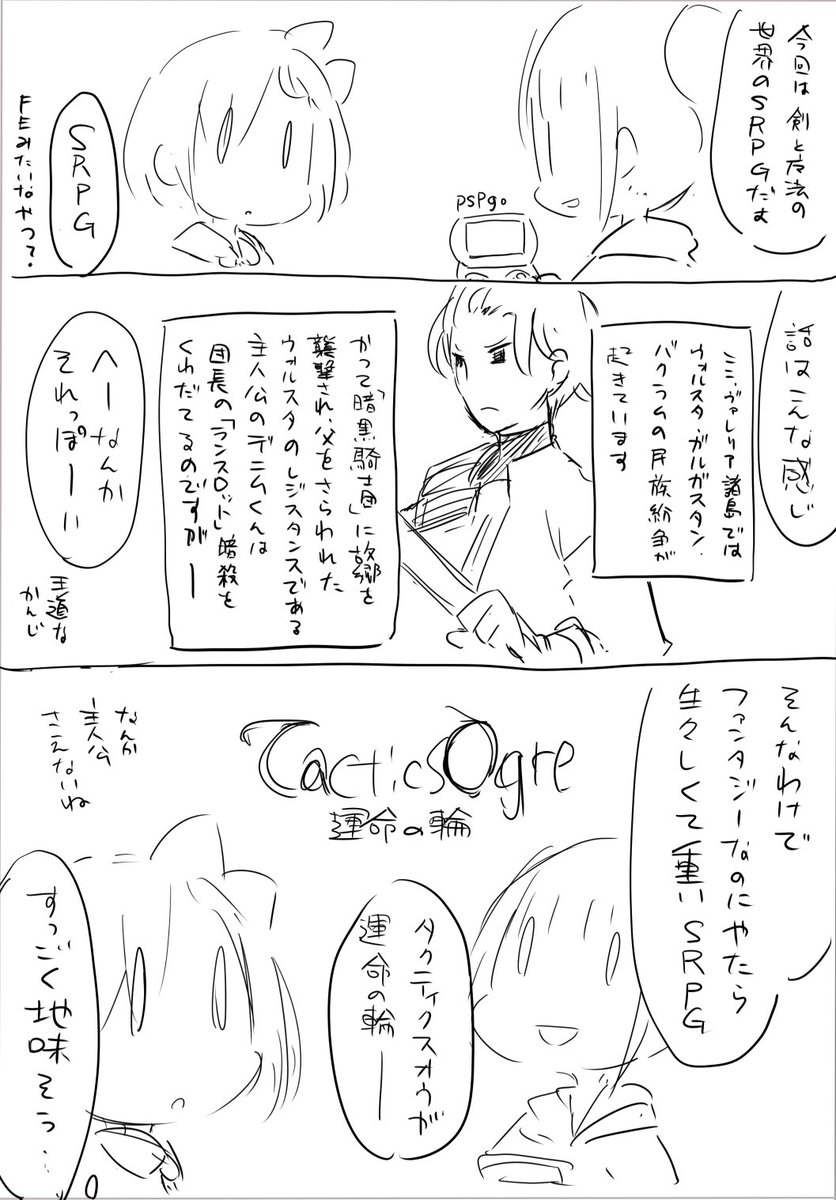 今回は剣と魔法の
世界のSRPGだよ
PSPgo
SRPG
FEみたいなやつ?
話はこんな感じ
ここ、ヴァレリア諸島では
ウォルスタ・ガルガスタン・
バクラムの民族紛争が
起きています
かつて「暗黒騎士団」に故郷を
襲撃され、父をさらわれた
ウォルスタのレジスタンスである
主人公のデニムくんは
団長の「ランスロット」暗殺を
くわだてるのですがー
へーなんか
それっぽーい
王道な
かんじ
そんなわけで
ファンタジーなのにやたら
生々しくて重いSRPG
TacticsOgre
運命の輪
タクティクスオウガ
運命の輪ー
なんか
主人公
さえないね
すっごく地味そう…